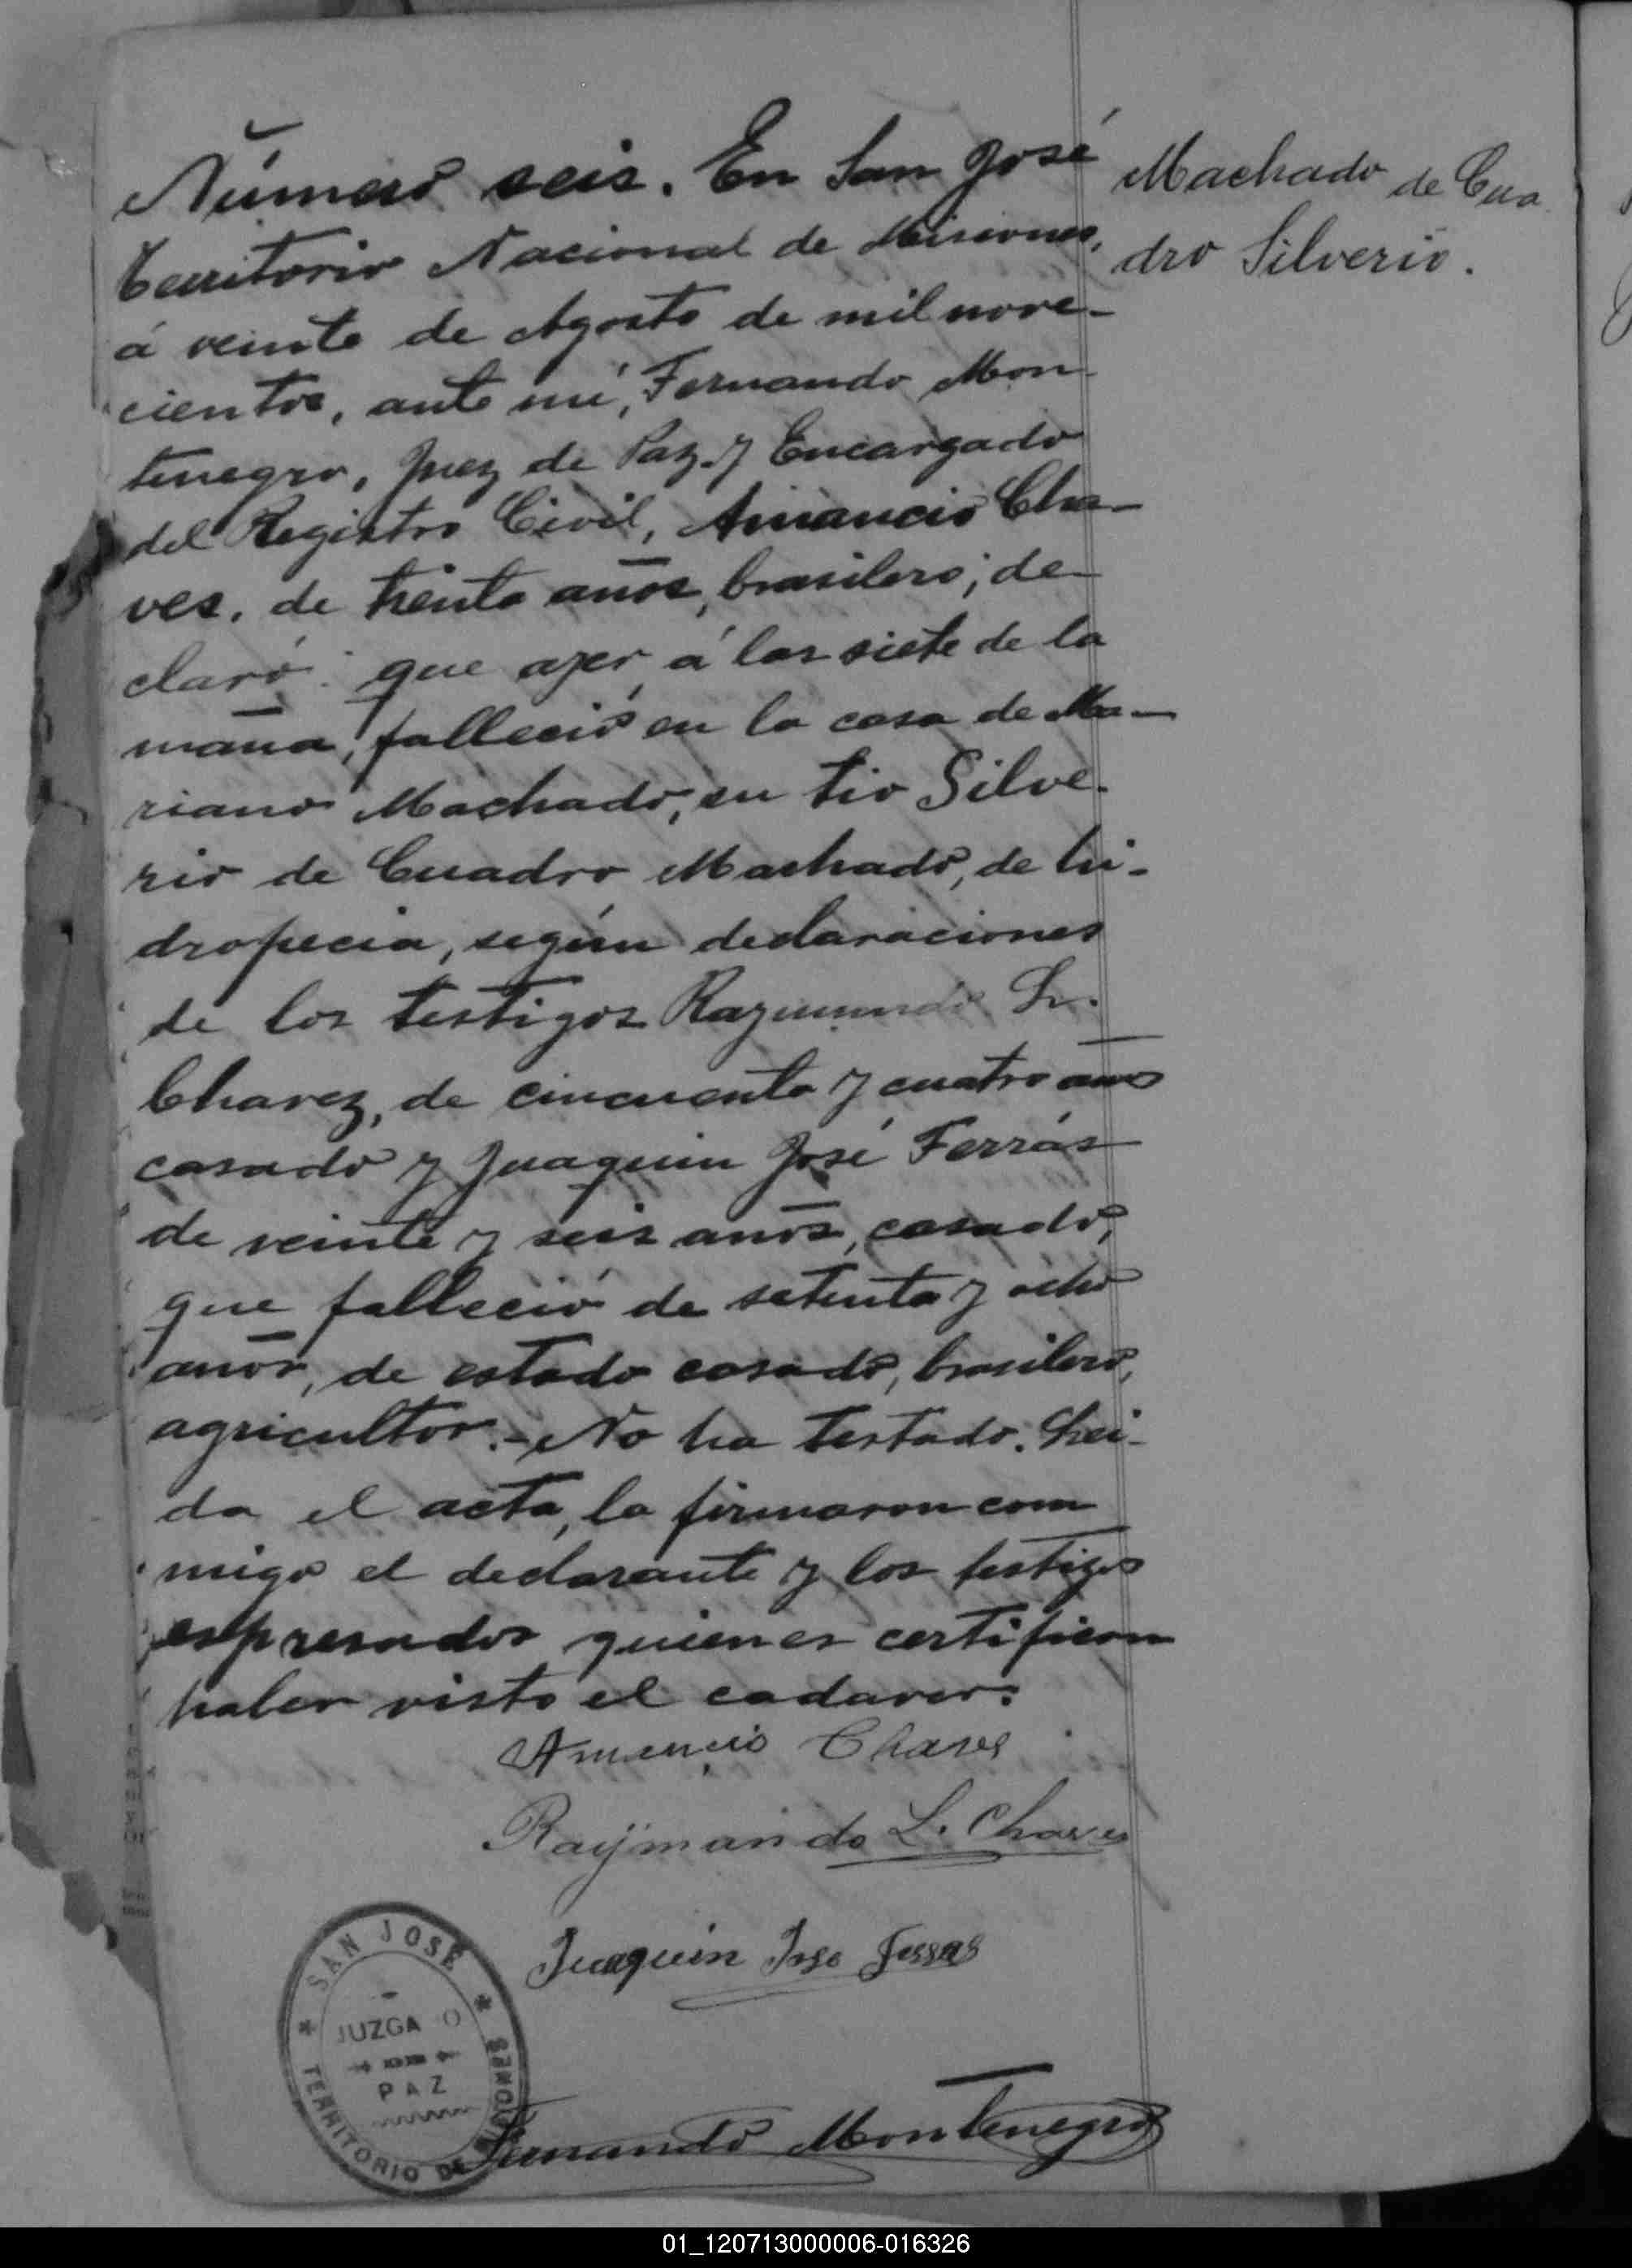 Número seis. En San José
Territorio Nacional de Misiones,
á veinte de Agosto de mil nove-
cientos, ante mí, Fernando Mon-
tenegro, Juez de Paz y Encargado
del Registro Civil, Amancio Cha-
ves, de treinta años, brasilero; de-
claró: que ayer á las siete de la
mañana, falleció en la casa de Ma-
riano Machado, su tio Silve-
rio de Cuadro Machado, de hi-
dropecia, según declaraciones
de los testigos Raymundo L.
Chavez, de cincuenta y cuatro años
casado y Juaquin José Ferrás
de veinte y seis años, casado,
que falleció de setenta y ocho
años, de estado casado, brasilero,
agricultor.- No ha testado. Lei-
da el acta, la firmaron com
migo el declarante y los testigos
espresados quienes certifican
haber visto el cadaver.
Machado de Cua
dro Silverio.
Amancio Chaves
Raÿmundo L. Chaves
Juaquin Jose Ferras
Fernando Montenegro
* SAN JOSÉ *
JUZGA O
PAZ
TERRITORIO DE MISIONES
01_120713000006-016326